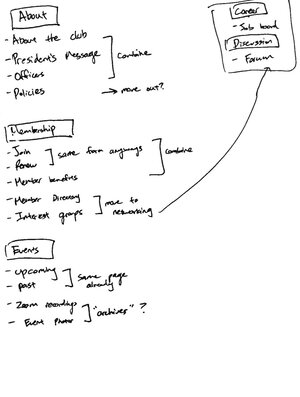 About
- About the club
- President's Message
combine
- Officers
- Policies → move out?
Membership
- Join
- Renew
same form anyways
combine
- Member benefits
- Member Directory
- Interest groups
move to
networking
Events
- Upcoming
- Past
same page
already
- Zoom recordings
- Event Photos
"archives" ?
Career
- Job board
Discussion
- Forum